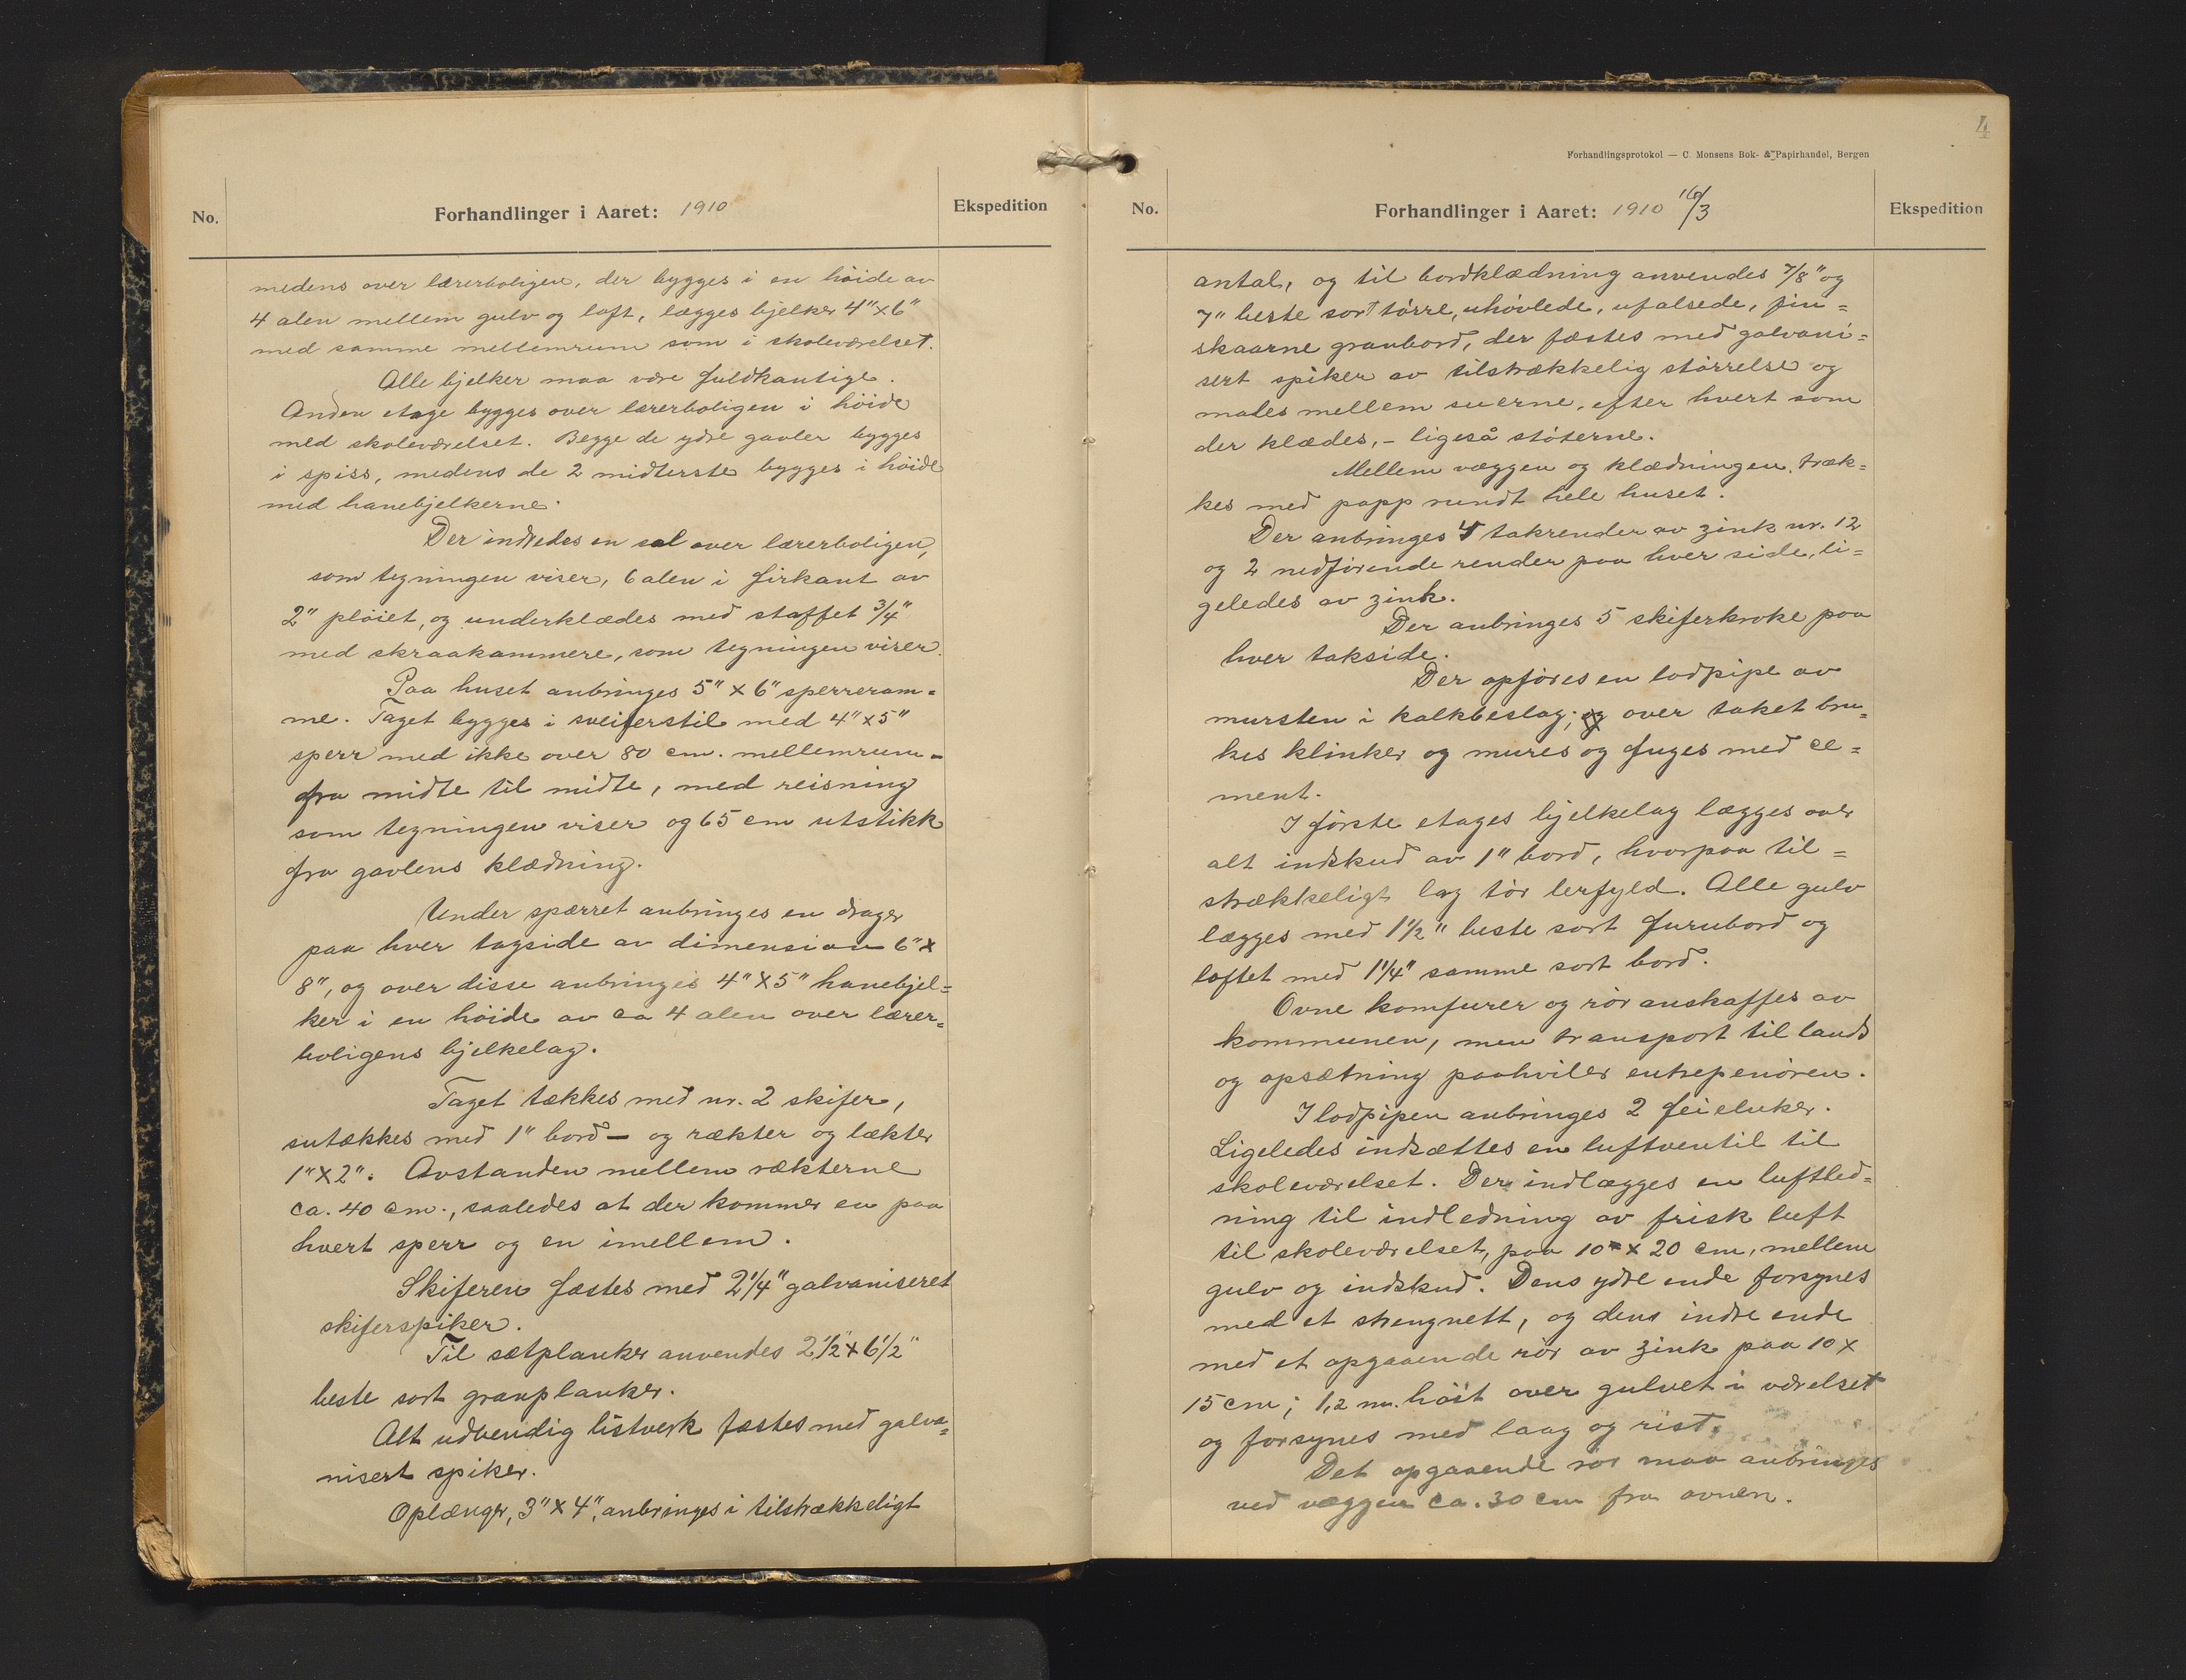 No.
Forhandlinger i Aaret: 1910
Ekspedition
medens over lærerboligen, der bygges i en höide av
4 alen mellem gulv og loft, lægges bjelker 4" x 6"
med samme mellemrum som i skoleværelset.
Alle bjelker maa være fuldkantige.
Anden etage bygges over lærerboligen i höide
med skoleværelset. Begge de ydre gavler bygges
i spiss, medens de 2 midterste bygges i höide
med hanebjelkerne.
Der indredes en sal over lærerboligen,
som tegningen viser, 6 alen i firkant av
2" plöiet, og underklædes med staffet 3/4"
med skraakammere, som tegningen viser.
Paa huset anbringes 5" x 6" sperreram=
me. Taget bygges i sveiserstil med 4" x 5"
sperr med ikke over 80 cm. mellemrum
fra midte til midte, med reisning
som tegningen viser og 65 cm utstikk
fra gavlens klædning.
Under spærret anbringes en drager
paa hver tagside av dimension 6" x
8", og over disse anbringes 4" x 5" hanebjel=
ker i en höide av ca 4 alen over lærer=
boligens bjelkelag.
Taget tækkes med nr. 2 skifer,
sutækkes med 1" bord – og rækter og lækter
1" x 2". Avstanden mellem rækterne
ca. 40 cm., saaledes at der kommer en paa
hvert sperr og en imellem.
Skiferen fæstes med 2 1/4" galvaniseret
skiferspiker.
Til sætplanker anvendes 2 1/2" x 6 1/2"
beste sort granplanker.
Alt udvendig listverk fæstes med galva=
nisert spiker.
Oplænger, 3" x 4", anbringes i tilstrækkeligt
4
Forhandlingsprotokol — C. Monsens Bok- & Papirhandel, Bergen
No.
Forhandlinger i Aaret: 1910 16/3
Ekspedition
antal, og til bordklædning anvendes 7/8" og
7" beste sort törre, uhövlede, ufalsede, fin=
skaarne granbord, der fæstes med galvani=
sert spiker av tilstrækkelig störrelse og
males mellem suerne, efter hvert som
der klædes, – ligeså stöterne.
Mellem væggen og klædningen træk=
kes med papp rundt hele huset.
Der anbringes 4 takrender av zink nr. 12
og 2 nedförende render paa hver side, li=
geledes av zink.
Der anbringes 5 skiferkroke paa
hver takside.
Der opföres en lodpipe av
mursten i kalkbeslag; og over taket bru=
kes klinker og mures og fuges med ce=
ment.
I förste etages bjelkelag lægges over
alt indskud av 1" bord, hvorpaa til=
strækkeligt lag tör lerfyld. Alle gulv
lægges med 1 1/2" beste sort furubord og
loftet med 1 1/4" samme sort bord.
Ovne komfurer og rör anskaffes av
kommunen, men transport til lands
og opsætning paahviler entrepenören.
I lodpipen anbringes 2 feieluker.
Ligeledes indsættes en luftventil til
skoleværelset. Der indlægges en luftled=
ning til indledning av frisk luft
til skoleværelset, paa 10 x 20 cm, mellem
gulv og indskud. Dens ydre ende forsynes
med et strengnett, og dens indre ende
med et opgaaende rör av zink paa 10 x
15 cm; 1,2 m. höit over gulvet i værelset
og forsynes med laag og rist.
Det opgaaende rör maa anbringes
ved væggen ca. 30 cm fra ovnen.